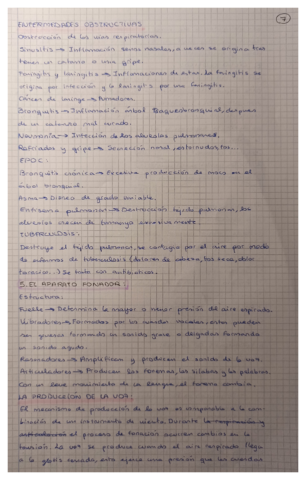 7
ENFERMEDADES OBSTRUCTIVAS
Obstrucción de las vías respiratorias.
Sinusitis → Inflamación senos nasales, a veces se origina tras
tener un catarro o una gripe.
Faringitis y laringitis → Inflamaciones de estas. La laringitis se
origina por infección y la faringitis por una laringitis.
Cáncer de laringe → Fumadores.
Bronquitis → Inflamación árbol traqueobronquial, después
de un catarro mal curado.
Neumonía → Infección de los alvéolos pulmonares.
Resfriados y gripe → Secreción nasal, estornudos, tos...
EPOC:
Bronquitis crónica → Excesiva producción de moco en el
árbol bronquial.
Asma → Disnea de grado variable.
Enfisema pulmonar → Destrucción tejido pulmonar, los
alvéolos crecen de tamaño
TUBERCULOSIS:
Destruye el tejido pulmonar, se contagia por el aire por medio
de tuberculosis (dolores de cabeza, tos seca, dolor
Se trata con antibióticos.
5. EL APARATO FONADOR
Estructura:
Fuelle → Determina la mayor o menor presión del aire espirado.
Vibradores → Formados por las cuerdas vocales, estas pueden
ser gruesas formando un sonido grave o delgadas formando
un sonido agudo.
Resonadores → Amplifican y producen el sonido de la voz.
Articuladores → Producen los fonemas, las sílabas y las palabras.
Con un leve movimiento de la lengua, el fonema cambia.
LA PRODUCCIÓN DE LA VOZ
El mecanismo de producción de la voz es comparable a la
de un instrumento de viento. Durante
el proceso de fonación ocurren cambios en la
La voz se produce cuando el aire respirado llega
a la glotis cerrada, este ejerce una presión que las cuerdas